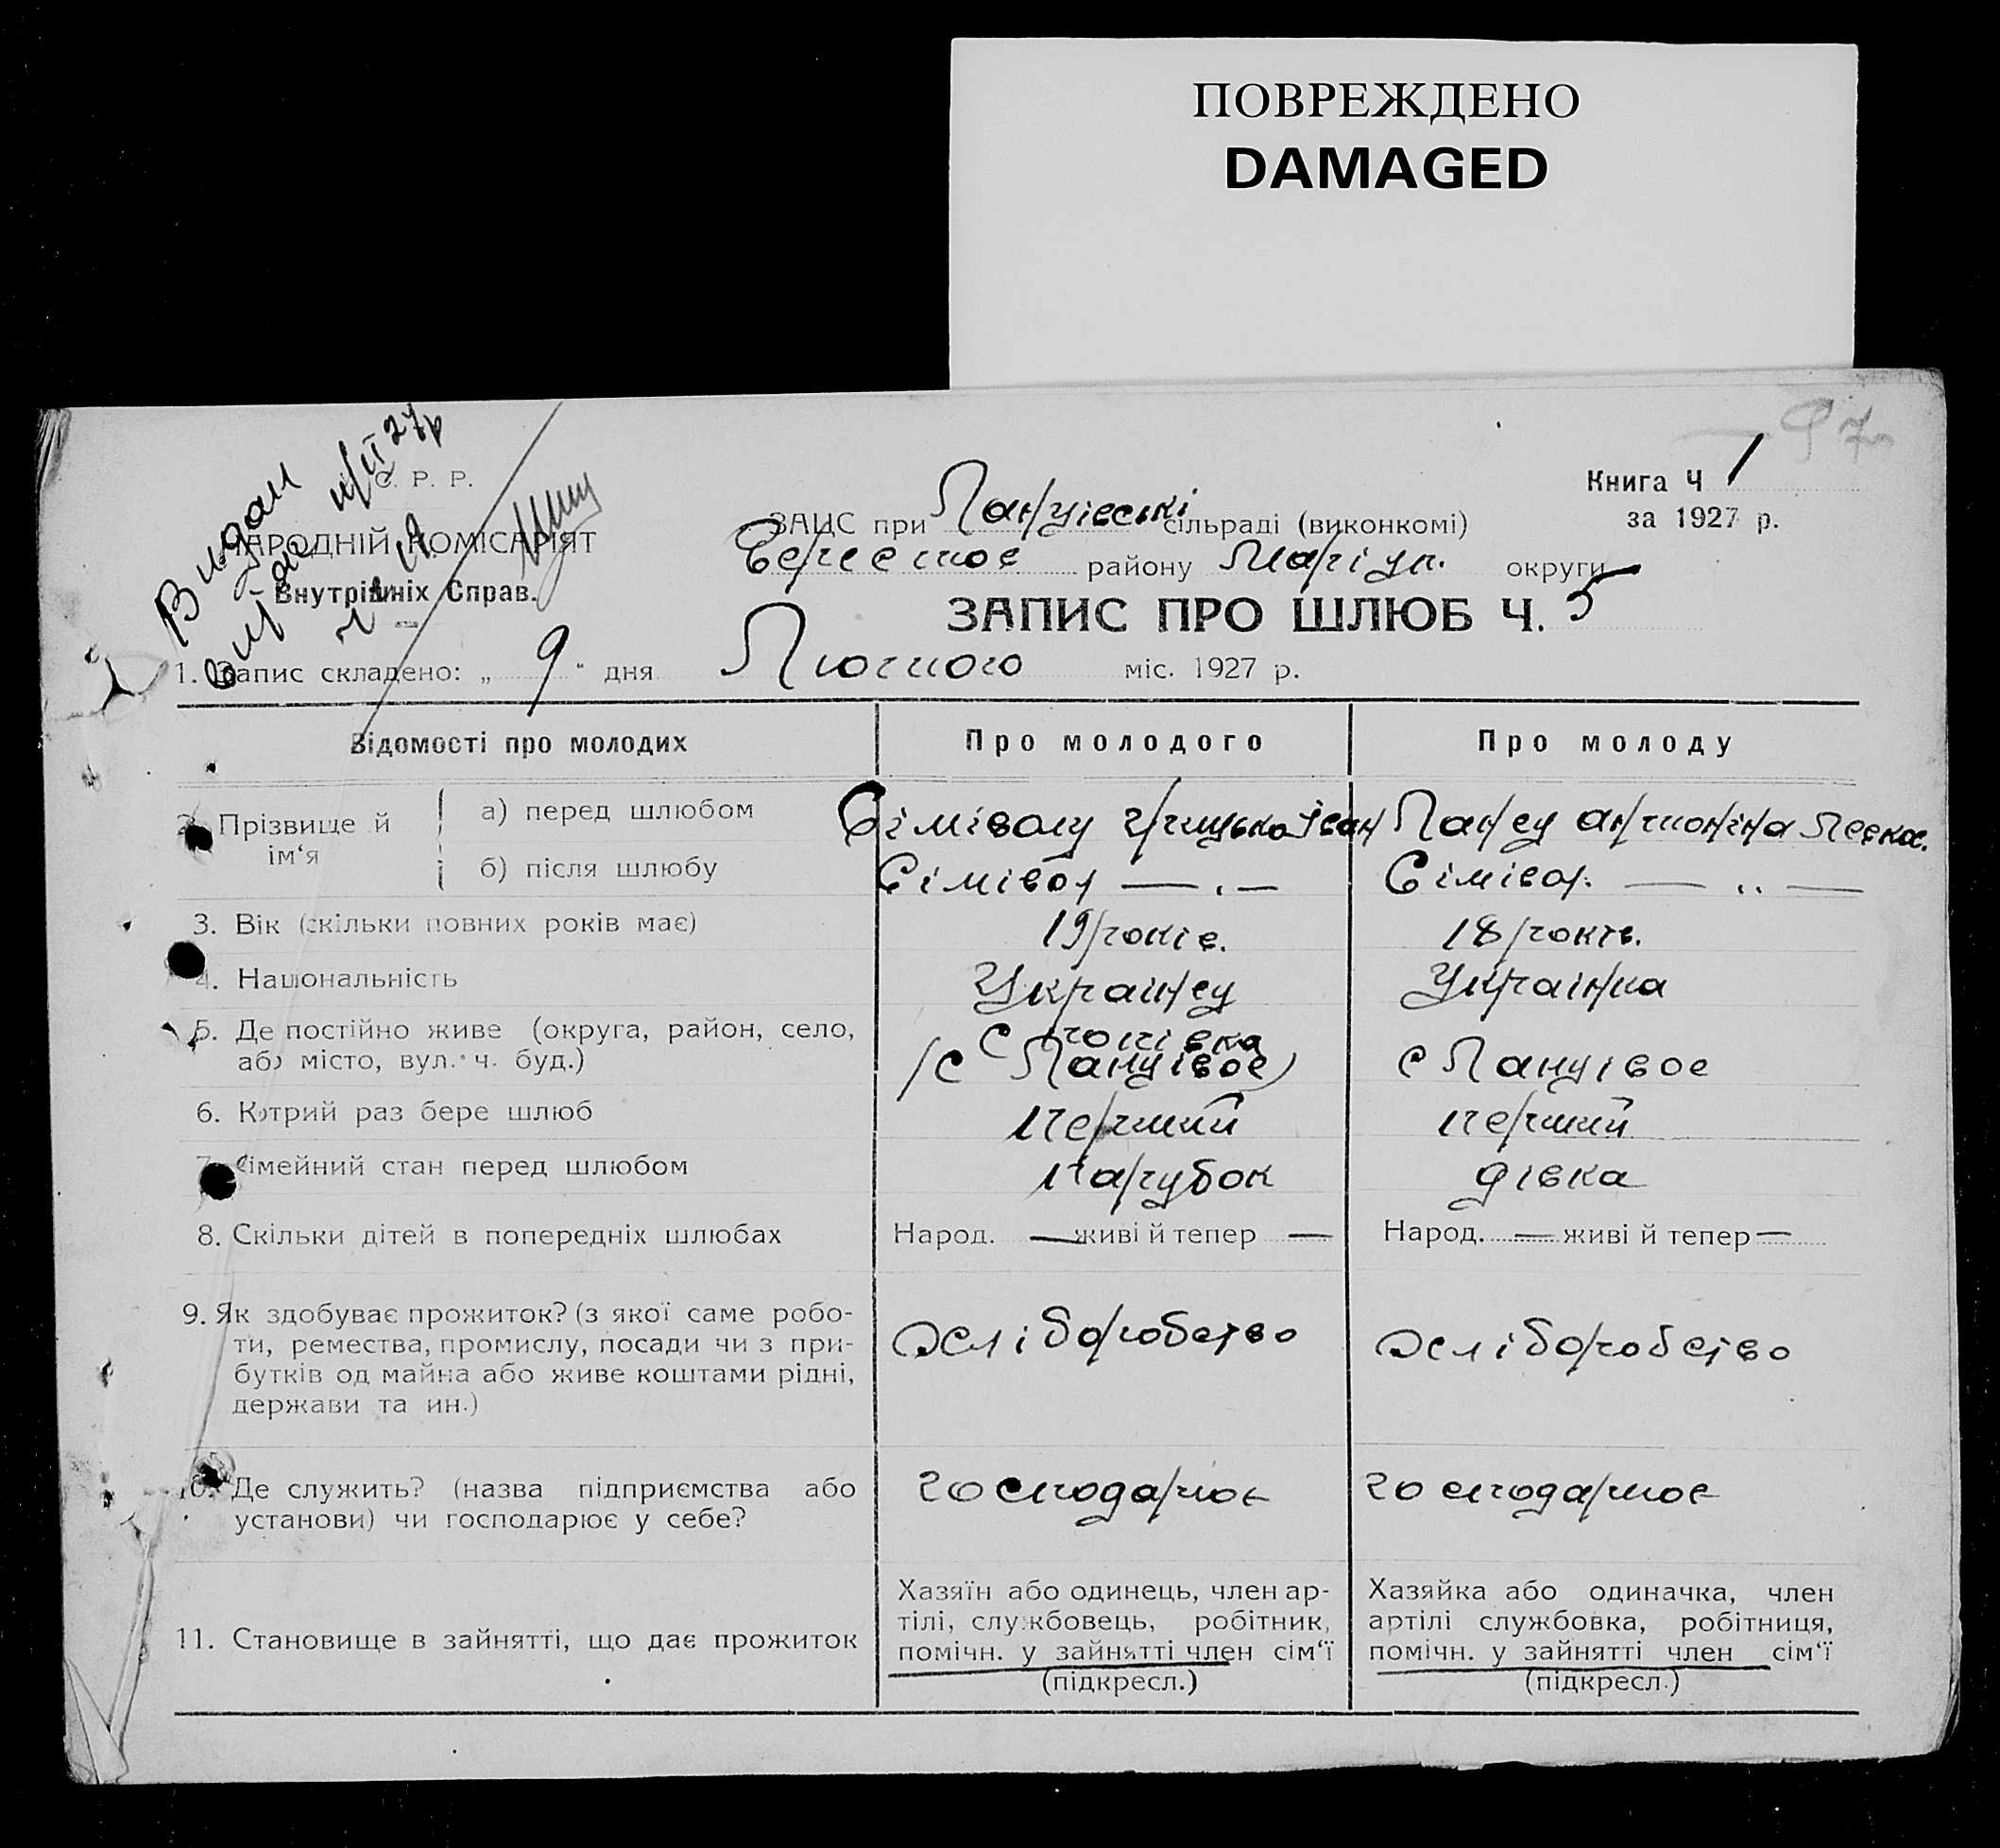 ПОВРЕЖДЕНО
DAMAGED
97
Видан
11/II 27р
С. Р. Р.
НАРОДНІЙ КОМІСАРІЯТ
Внутрішніх Справ.
ЗАЦС при Ланціевські сільраді (виконкомі)
Берестов району Маріуп. округи
Книга Ч 1
за 1927 р.
ЗАПИС ПРО ШЛЮБ Ч. 5
1. Запис складено: „ 9 “ дня Лютого міс. 1927 р.
Відомості про молодих Про молодого Про молоду
2. Прізвище й ім‘я
а) перед шлюбом Сіміволу Грицько Іван Ланец Антоніна Левков.
б) після шлюбу Сімівол — „ — Сімівол. — „ —
3. Вік (скільки повних років має) 19 років. 18 років.
4. Національність Украінец Украінка
5. Де постійно живе (округа, район, село, с
або місто, вул. ч. буд.) (с Ланцівое) с Ланцівое
6. Котрий раз бере шлюб перший перший
7. Сімейний стан перед шлюбом парубок дівка
8. Скільки дітей в попередніх шлюбах Народ. — живі й тепер — Народ. — живі й тепер —
9. Як здобуває прожиток? (з якої саме робо-
ти, ремества, промислу, посади чи з при-
бутків од майна або живе коштами рідні,
держави та ин.)
хліборобство хліборобство
10. Де служить? (назва підприємства або
установи) чи господарює у себе?
господарює господарює
11. Становище в зайнятті, що дає прожиток
Хазяїн або одинець, член ар-
тілі, службовець, робітник,
помічн. у зайнятті член сім‘ї
(підкресл.)
Хазяйка або одиначка, член
артілі службовка, робітниця,
помічн. у зайнятті член сім‘ї
(підкресл.)